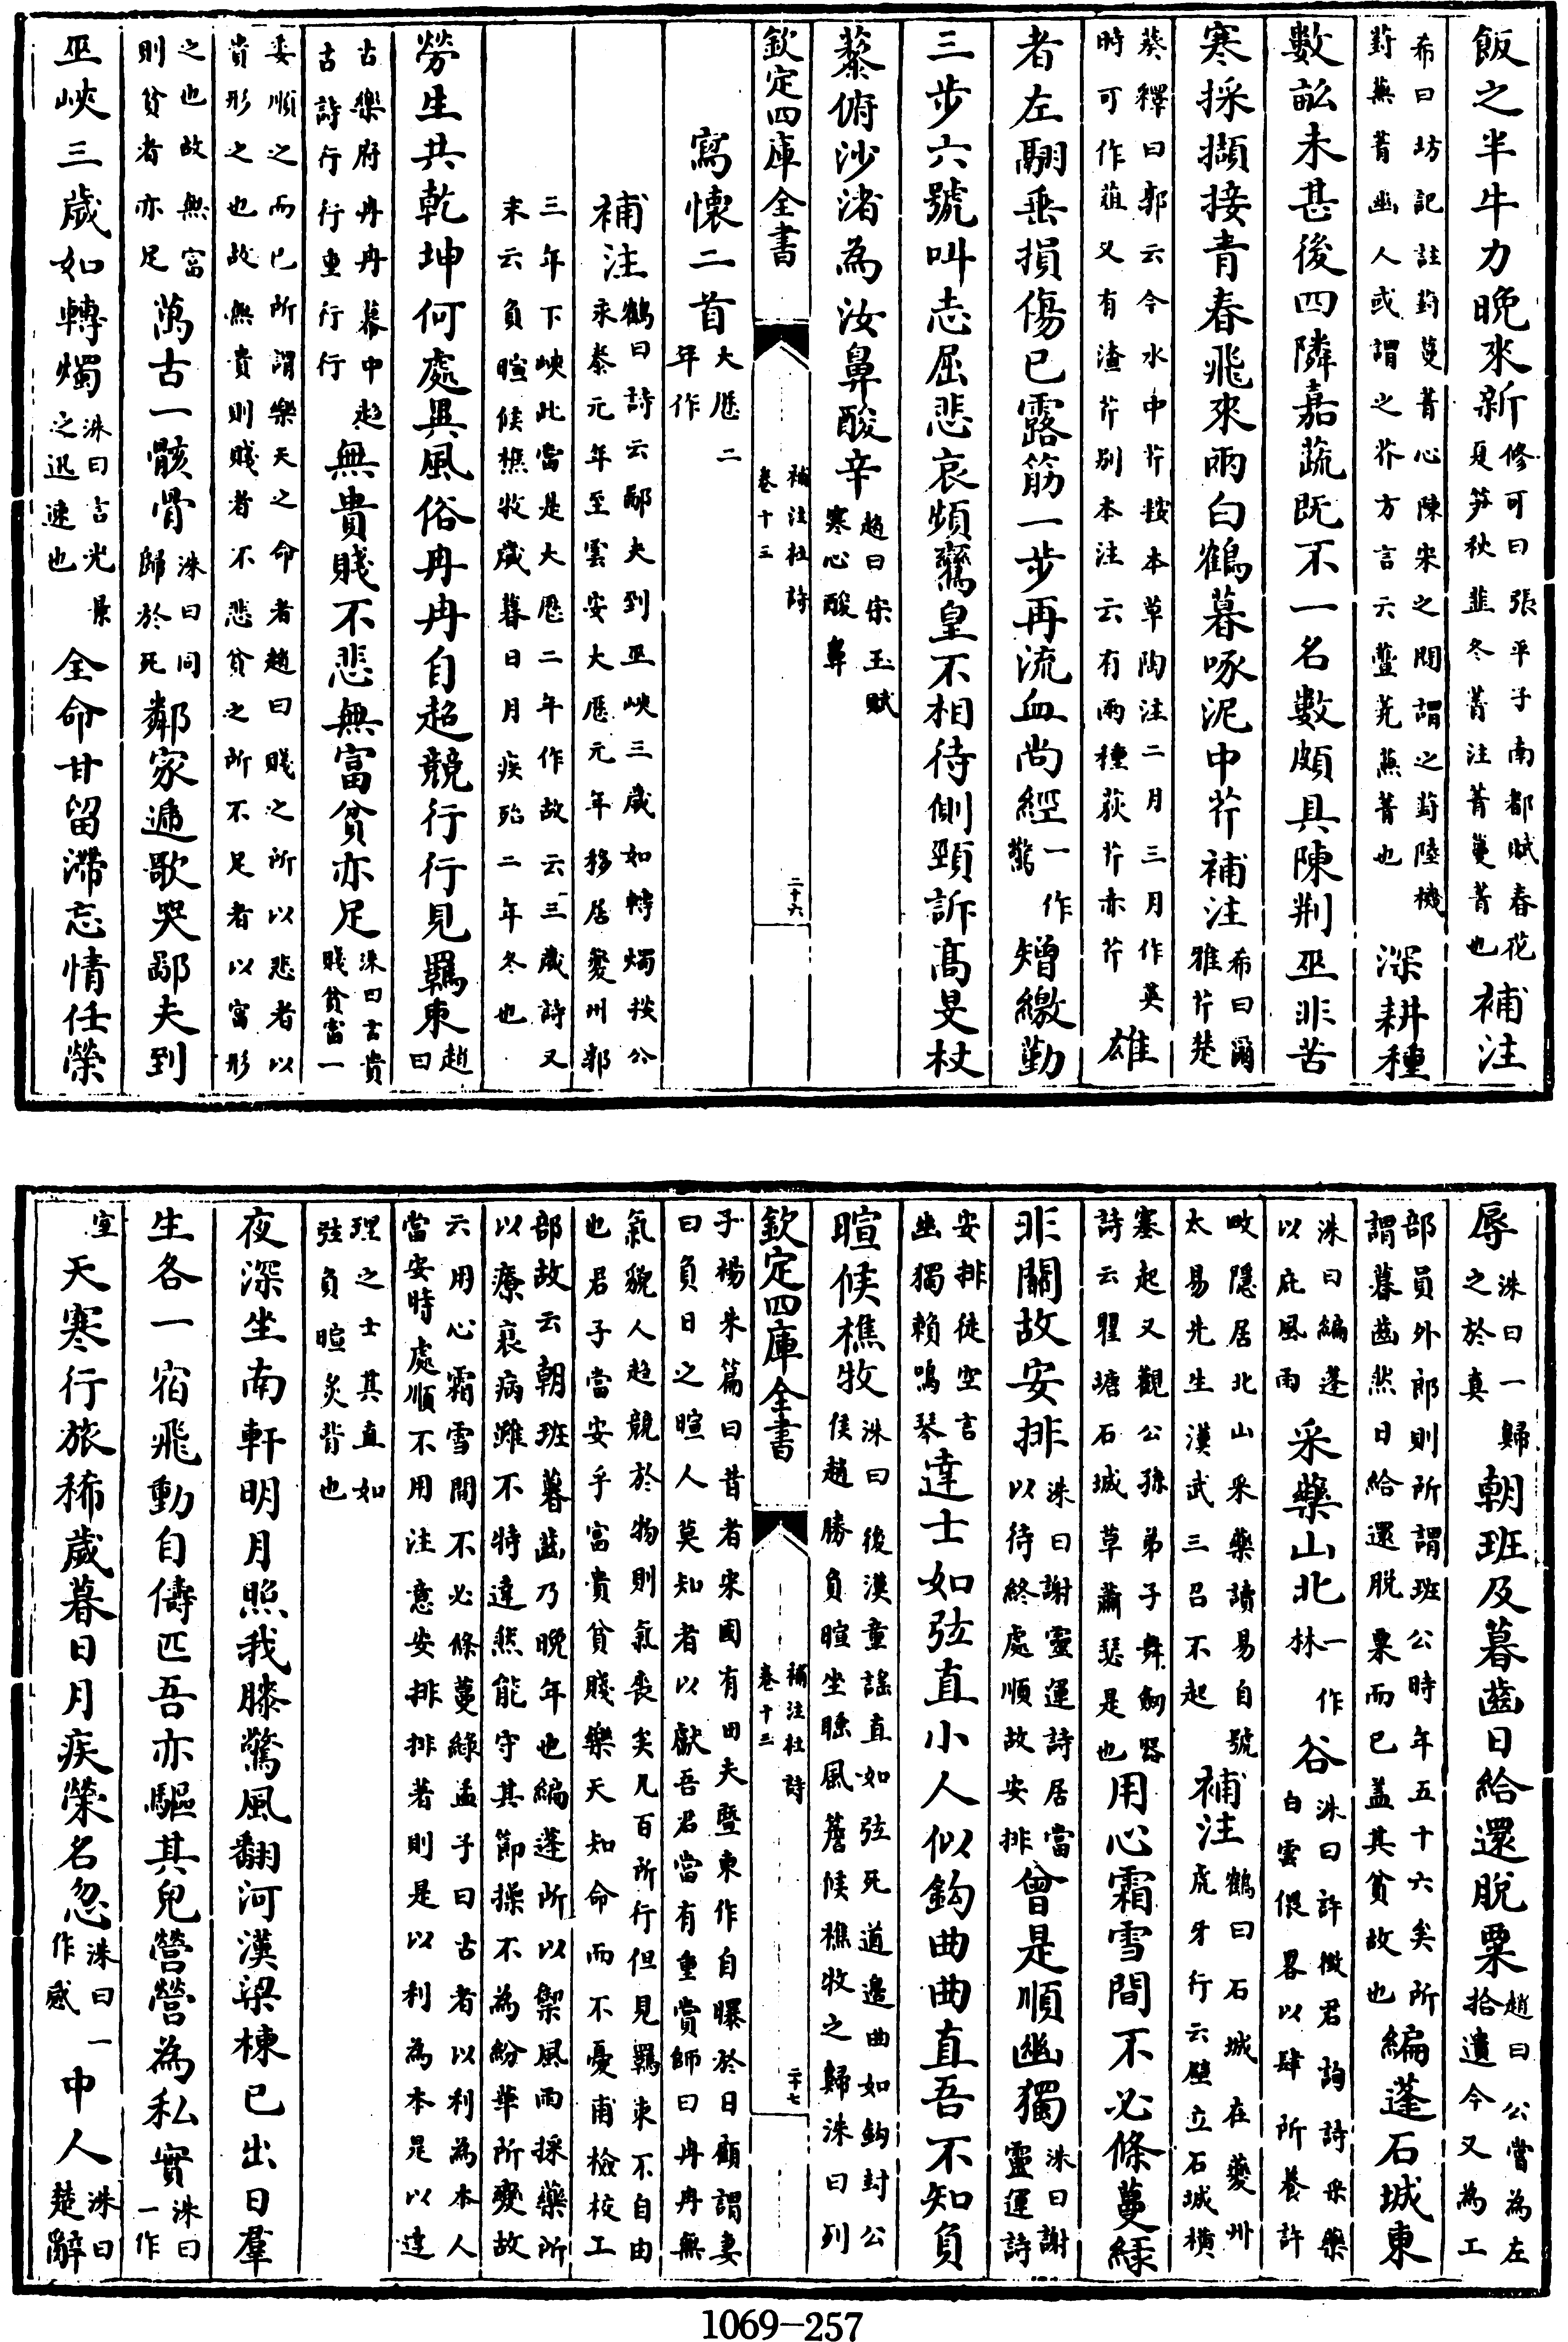 飯之半牛力晚來新修可曰張平子南都賦春花夏笋秋韭冬菁注菁蔓菁也補注
希曰坊記註葑蔓菁心陳宋之間謂之葑陸機葑蕪菁幽人或謂之芥方言云䖆荛蕪菁也深耕種
數畝未甚後四隣嘉蔬既不一名數頗具陳荆巫非苦
寒採擷接青春飛來兩白鶴暮啄泥中芹補注希曰爾雅芹楚
葵釋曰郭云今水中芹按本草陶注二月三月作英時可作葅又有渣芹别本注云有兩種荻芹赤芹雄
者左翮垂損傷已露筋一步再流血尚經一作驚矰繳勤
三步六號叫志屈悲哀頻鸞皇不相待側頸訴髙旻杖
藜俯沙渚為汝鼻酸辛趙曰宋玉賦寒心酸鼻
欽定四庫全書 補注杜詩卷十三 二十六
寫懷二首大厯二年作
補注鶴曰詩云鄙夫到巫峽三歲如轉燭按公永泰元年至雲安大厯元年移居夔州郭
三年下峽此當是大厯二年作故云三歲詩又末云負暄候樵牧歲暮日月疾殆二年冬也
勞生共乾坤何處異風俗冉冉自趨競行行見羈束趙曰
古樂府冉冉幕中趨古詩行行重行行無貴賤不悲無富貧亦足洙曰言貴賤貧富一
委順之而已所謂樂天之命者趙曰賤之所以悲者以貴形之也故無貴則賤者不悲貧之所不足者以富形
之也故無富則貧者亦足萬古一骸骨洙曰同歸於死鄰家遞歌哭鄙夫到
巫峽三歲如轉燭洙曰言光景之迅速也全命甘留滯忘情任榮
辱洙曰一歸之於真朝班及暮齒日給還脫粟趙曰公嘗為左拾遺今又為工
部員外郎則所謂班公時年五十六矣所謂暮齒然日給還脫粟而已盖其貧故也編蓬石城東
洙曰編蓬以庇風雨采藥山北一作林谷洙曰許徵君詢詩采藥白雲偎畧以肆所養許
畋隱居北山采藥讀易自號太易先生漢武三召不起補注鶴曰石城在夔州虎牙行云壁立石城横
塞起又觀公孫弟子舞劒器詩云瞿塘石城草蕭瑟是也用心霜雪間不必條蔓緑
非關故安排洙曰謝靈運詩居當以待終處順故安排曾是順幽獨洙曰謝靈運詩
安排徒空言幽獨賴鳴琴達士如弦直小人似鈎曲曲直吾不知負
暄候樵牧洙曰後漢童謡直如弦死道邊曲如鈎封公侯趙勝負暄坐睡風簷候樵牧之歸洙曰列
欽定四庫全書 補注杜詩卷十三 二十七
子楊朱篇曰昔者宋國有田夫暨東作自曝於日顧謂妻曰負日之暄人莫知者以獻吾君當有重賞師曰冉冉無
氣貌人趨競於物則氣喪矣凡百所行但見羈束不自由也君子當安乎富貴貧賤樂天知命而不憂甫檢校工
部故云朝班暮齒乃晚年也編蓬所以禦風雨採藥所以療衰病雖不特達然能守其節操不為紛華所變故
云用心霜雪間不必條蔓緑孟子曰古者以利為本人當安時處順不用注意安排排著則是以利為本是以達
理之士其直如弦負暄炙背也
夜深坐南軒明月照我膝驚風翻河漢梁棟已出日羣
生各一宿飛動自儔匹吾亦驅其兒營營為私實洙曰一作
室天寒行旅稀歲暮日月疾榮名忽洙曰一作惑中人洙曰楚辭
1069-257